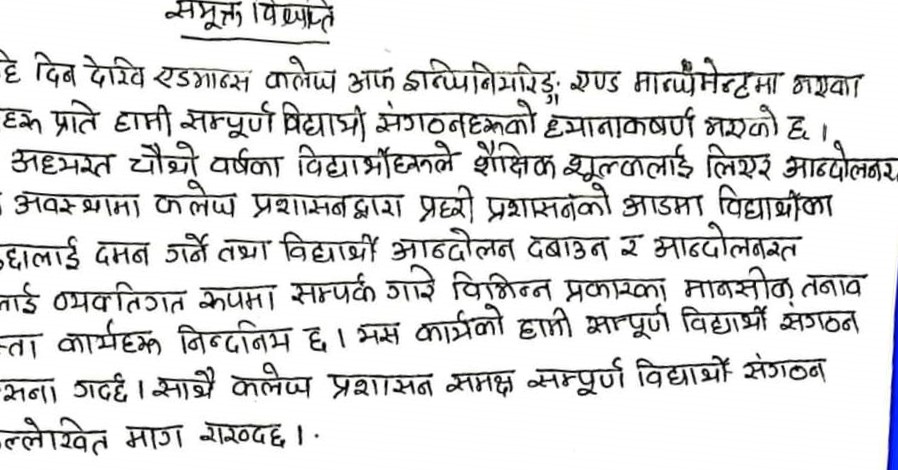 संयुक्त विज्ञप्ति
हि दिन देखि एडभान्स कलेज अफ इन्जिनियरिङ्ग एण्ड मान्जमेन्टमा भएका
हरू प्रति हामी सम्पूर्ण विद्यार्थी संगठनहरूको ध्यानाकषर्ण भएको छ ।
अध्यनरत चौथो वर्षका विद्यार्थीहरूले शैक्षिक शूल्कलाई लिएर आन्दोलनर
अवस्थामा कलेज प्रशासनद्वारा प्रहरी प्रशासनको आडमा विद्यार्थीका
द्दालाई दमन गर्ने तथा विद्यार्थी आन्दोलन दबाउन र आन्दोलनरत
लाई व्यक्तिगत रूपमा सम्पर्क गरि विभिन्न प्रकारका मानसीक तनाव
ता कार्यहरू निन्दनिय छ । यस कार्यको हामी सम्पूर्ण विद्यार्थी संगठन
सना गर्दछ । साथै कलेज प्रशासन समक्ष सम्पूर्ण विद्यार्थी संगठन
ल्लेखित माग राख्दछ ।